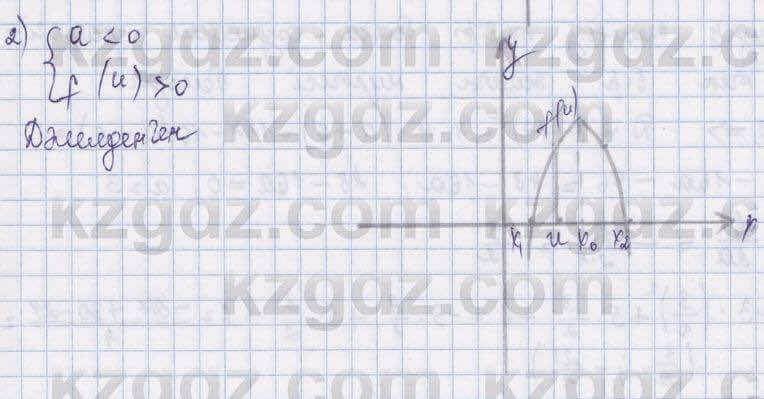 2) { a < 0
f(u) > 0
Дәлелденген
y
f(u)
x₁ u x₀ x₂ x
kzgdz.com
kzgdz.com
kzgdz.com
kzgdz.com
kzgdz.com
kzgdz.com